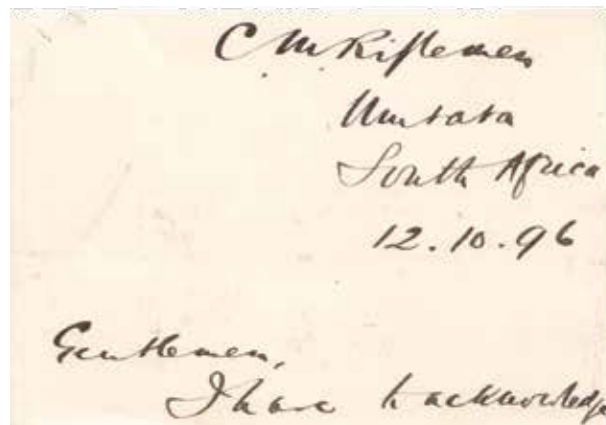 C. M. Riflemen
Umtata
South Africa
12.10.96
Gentlemen,
I have to acknowledge